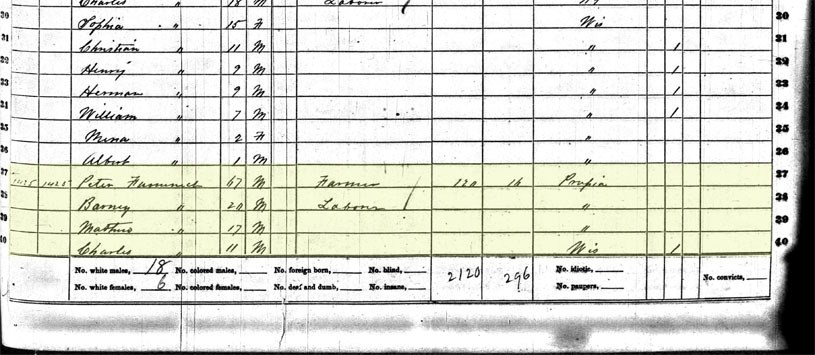 20 Charles " 18 M Labour
20 Sophia " 15 F Wis 20
21 Christian " 11 M " 1 21
22 Henry " 9 M " 1 22
23 Herman " 9 M " 1 23
24 William " 7 M " 1 24
25 Mena " 2 F " 25
26 Albert " 1 M " 26
27 1425 1425 Peter 67 M Farmer 120 16 Prusia 27
28 Barney " 20 M Labour / " 28
29 " 17 M " 29
40 Charles " 11 M Wis 1 40
No. white males, 18 No. colored males, No. foreign born, No. blind, 2120 296 No. idiotic, No. convicts,
No. white females, 6 No. colored females, No. deaf and dumb, No. insane, No. paupers,